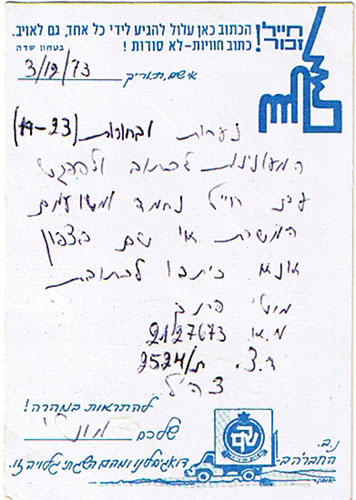 חייל!
זכור!
הכתוב כאן עלול להגיע לידי כל אחד, גם לאויב.
כתוב חוויות-לא סודות!
בטחון שדה
אי שם, תאריך 3/12/73
נערות ובחורות (19-23)
המעונינות לכתוב ולהפגש
עם חייל נחמד ומשועמם
המשרת אי שם בצפון
אנא כיתבו לכתובת
מוטי
מ.א 2127673
ד.צ. ת/2524
צה"ל
להתראות במהרה!
שלכם מוטי
נ.ב.
החברה ב-
דואגים לנו ומהם השגתי גלויה זו.